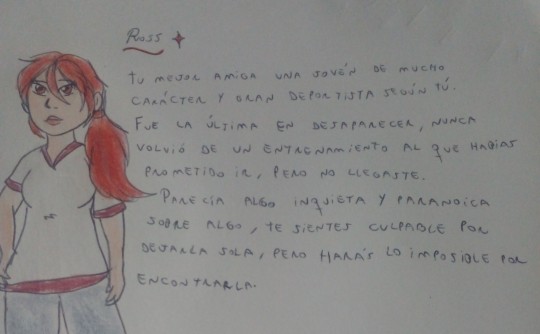 Ross
Tu mejor amiga una jovén de mucho
carácter y gran deportista según tú.
Fue la última en desaparecer, nunca
volvió de un entrenamiento al que habias
prometido ir, pero no llegaste.
Parecía algo inquieta y paranoica
sobre algo, te sientes culpable por
dejarla sola, pero harás lo imposible por
encontrarla.